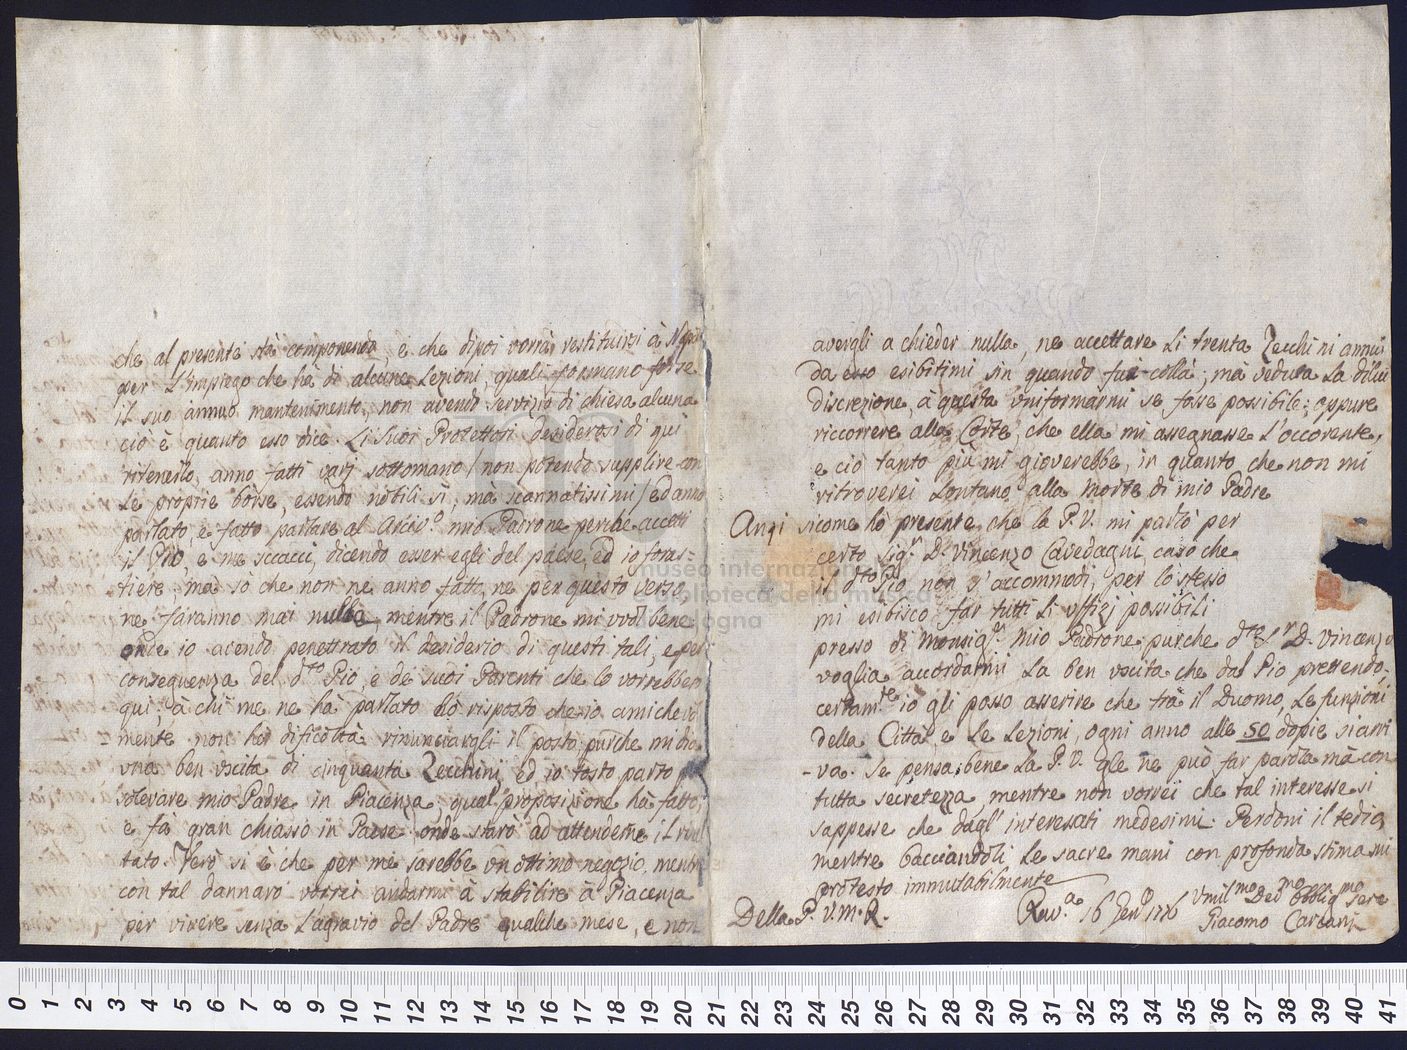 che al presente stà componendo e che dipoi vorrà restituirsi à
per L'impiego che hà di alcune Lezioni, quali formano forse
il suo annuo mantenimento, non avendo servizio di chiesa alcuna
ciò è quanto esso dice. Li Suoi Protettori desiderosi di qui
ritenerlo, anno fatti varj sottomano / non potendo supplire con
Le proprie borse, essendo nobili sì, mà scannatissimi / ed anno
parlato, e fatto parlare al nrō Padrone perche accetti
il Pio, e me scacci, dicendo esser egli del paese, ed io foras=
tiere, mà sò che non ne anno fatto, ne per questo verso
ne faranno mai nulla, mentre il Padrone mi vuol bene
onde io avendo penetrato il desiderio di questi tali, e per
conseguenza del d.to Pio, e de suoi Parenti che lo vorrebbero
qui, à chi me ne hà parlato hò risposto che io amichevol
mente non hò dificoltà rinunciargli il posto, purche mi dia
una ben uscita di cinquanta Zecchini, ed io tosto parto
solevare mio Padre in Piacenza, qual proposizione hà fatto,
e fà gran chiasso in Paese, onde starò ad attenderne il risul
tato. Vero si è che per me sarebbe un ottimo negozio, mentre
con tal dannaro vorrei andarmi à stabilire à Piacenza
per vivere senza L'agravio del Padre qualche mese, e non
avergli a chieder nulla, ne accettare Li trenta Zecchini annui
da esso esibitimi sin quando fui colla, mà veduta La di lui
discrezione, à questa uniformarmi se fosse possibile; oppure
riccorrere alla Corte, che ella mi assegnasse L'occorente,
e ciò tanto più mi gioverebbe, in quanto che non mi
ritroverei Lontano alla Morte di mio Padre
Anzi sicome hò presente che la P. V. mi parlò per
certo Sig.r D. Vincenzo Cavedagni, caso che
il d.to Pio non s'accommodi, per lo stesso
mi esibisco far tutti Li uffizi possibili
presso di Monsig.r mio Padrone purche d.to S.r D. Vincenzo
voglia accordarmi La ben uscita che dal Pio prettendo,
certam.te io gli posso asserire che trà il Duomo, Le funzioni
della Città, e Le Lezioni, ogni anno alle 50 dopie si arri
-va. Se pensa bene La P. V. gle ne può far parola mà con
tutta secretezza, mentre non vorrei che tal interesse si
sappesse che dagl' interessati medesimi. Perdoni il tedio,
mentre bacciandoli Le sacre mani con profonda stima mi
protesto immutabilmente
Della P. V. M. R.
Rav.a 16 Gen.o 1776
Umil.mo Dev.mo Obblig.mo Sere
Giacomo Carcani
museo internazionale
biblioteca della musica
bologna
0 1 2 3 4 5 6 7 8 9 10 11 12 13 14 15 16 17 18 19 20 21 22 23 24 25 26 27 28 29 30 31 32 33 34 35 36 37 38 39 40 41